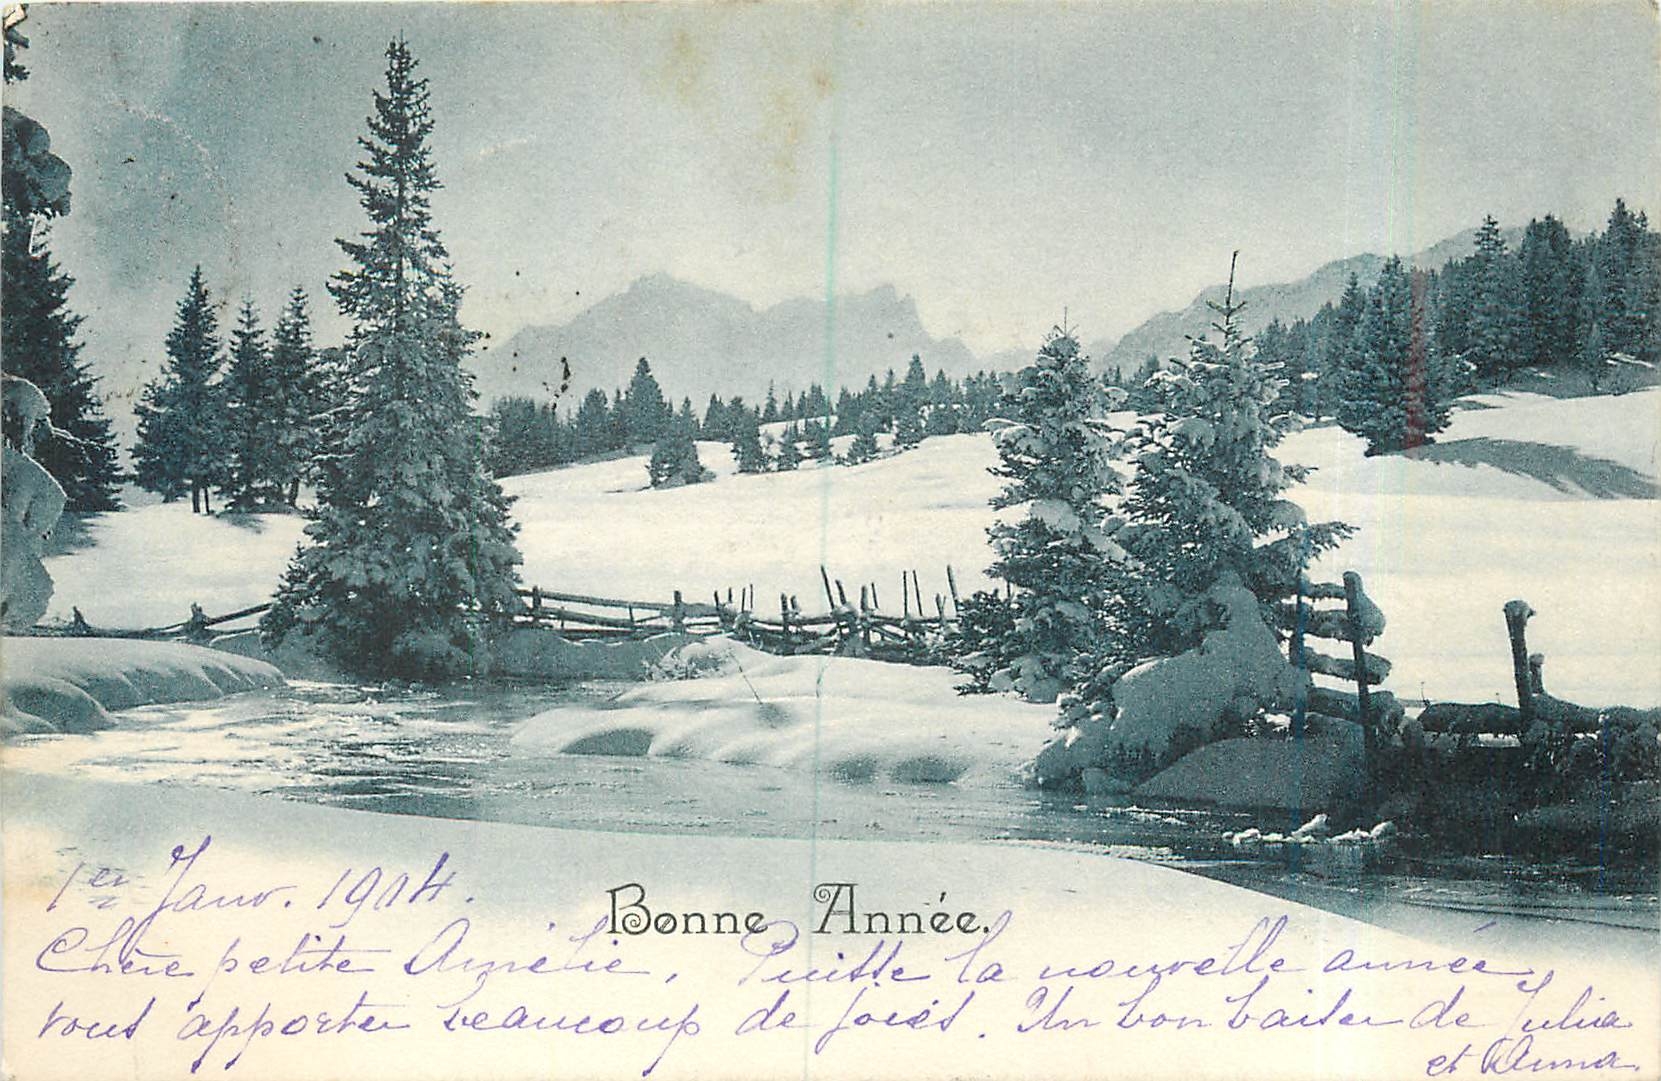 1er Janv. 1904.
Bonne Année.
Chère petite Amélie, Puisse la nouvelle année,
vous apporter beaucoup de joies. Un bon baiser de Julia
et Anna.